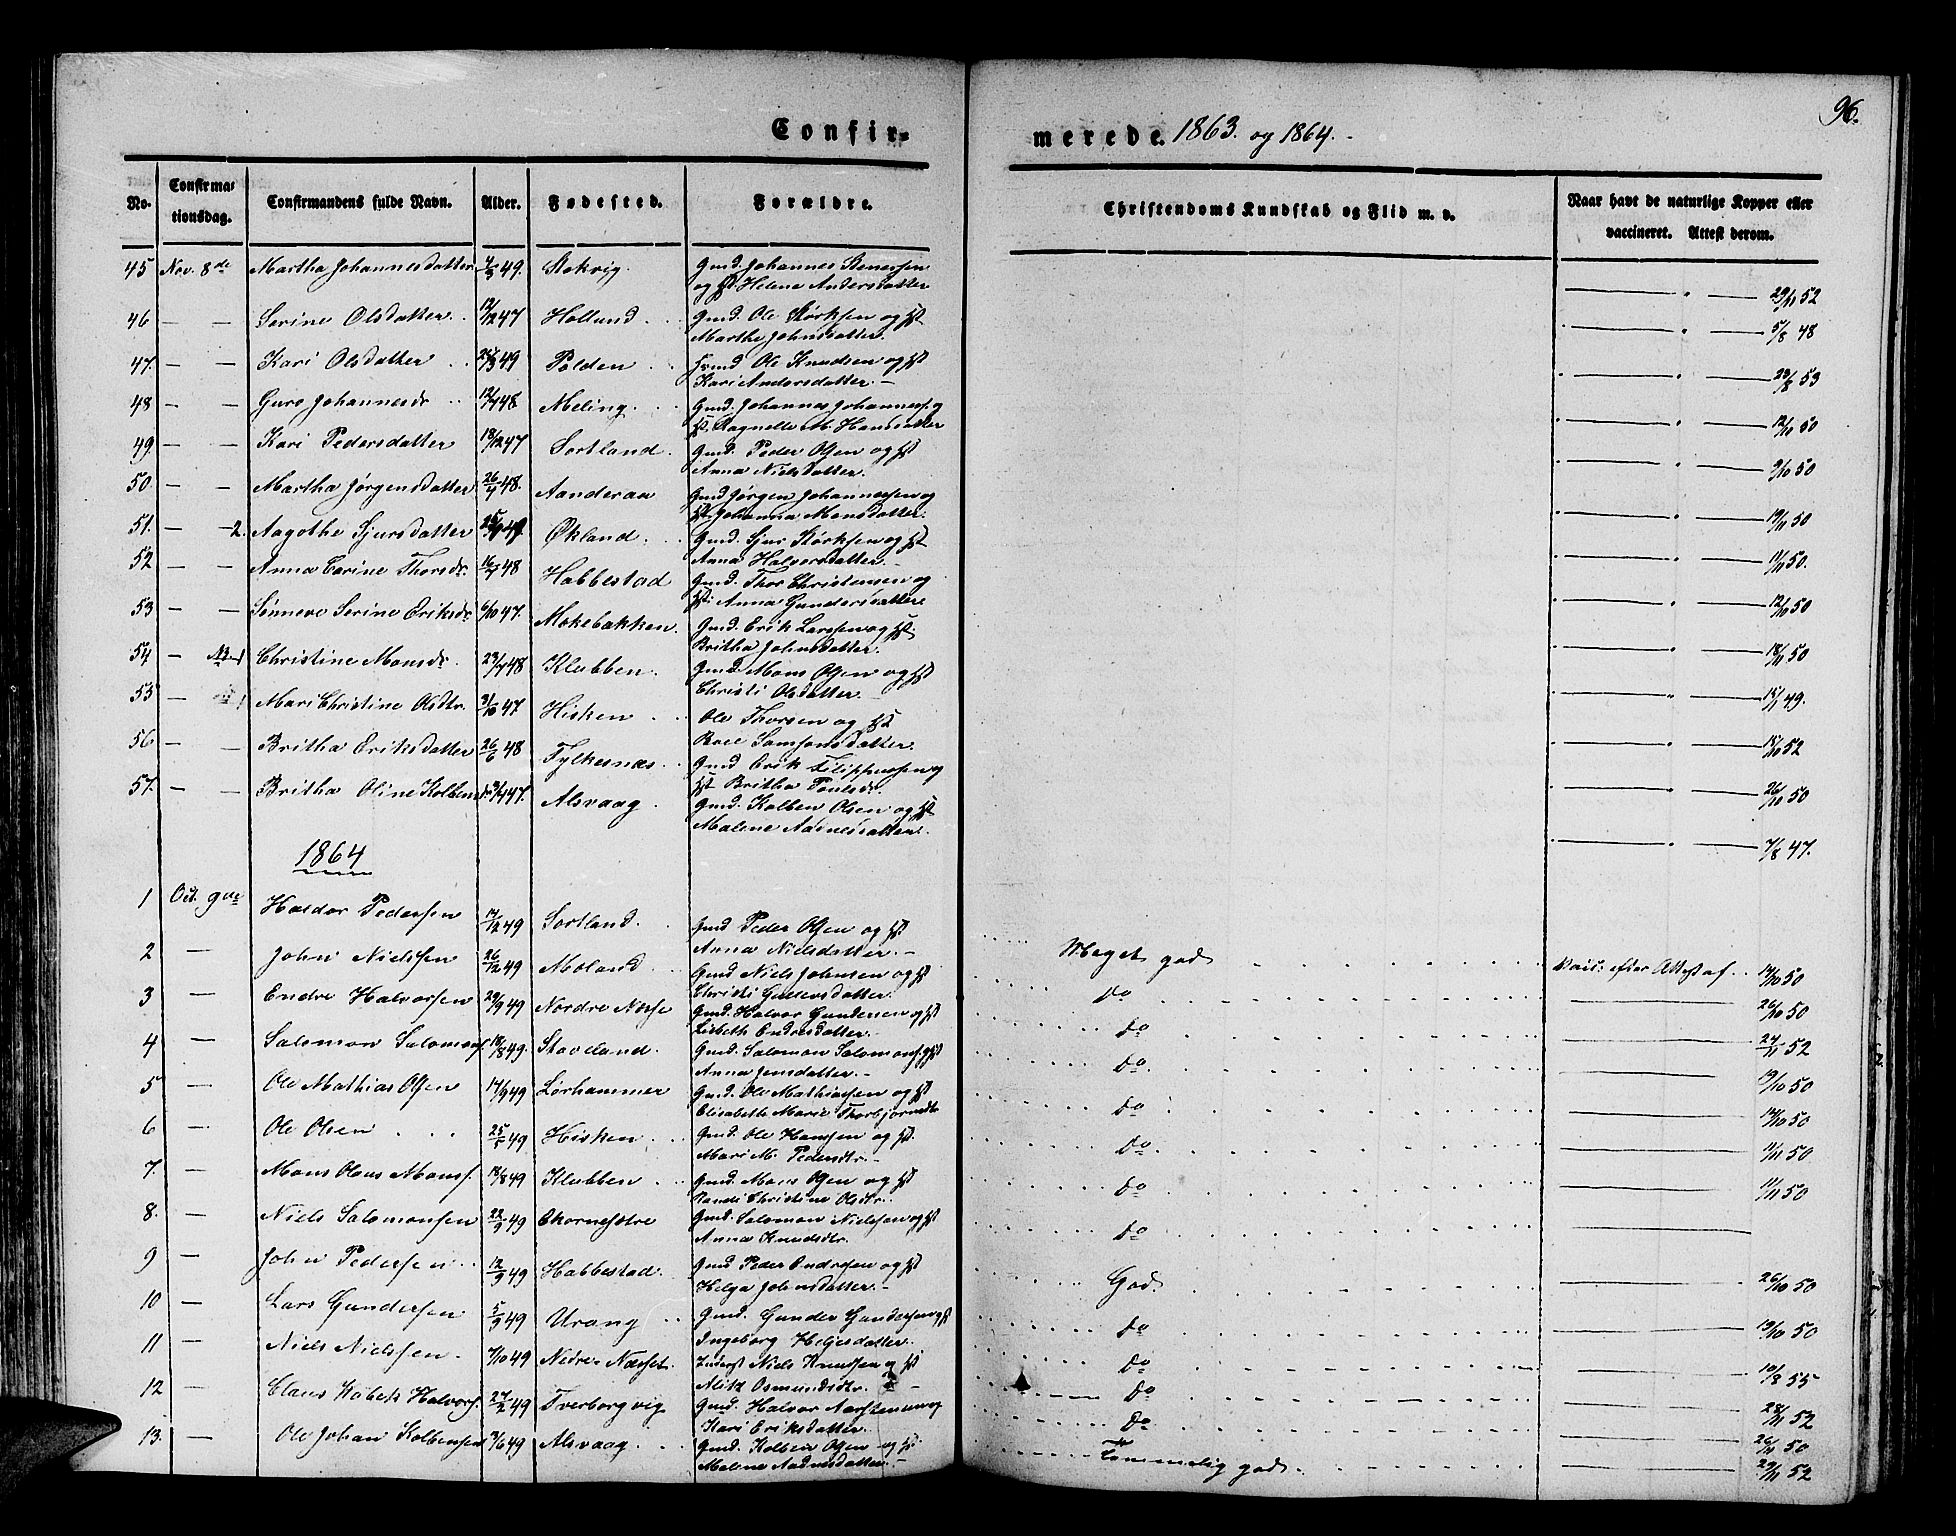 96.
Confir-
merede. 1863. og 1864.
No.
Confirma-
tionsdag.
Confirmandens fulde Navn.
Alder.
Fødested.
Forældre.
Christendoms Kundskab og Flid m. v.
Naar havt de naturlige Kopper eller
vaccineret. Attest derom.
45 Nov. 8de Martha Johannesdatter 4/3 49. Stokvig. Gmd. Johannes Stenersen
og Hst Helene Andersdatter 29/11 52
46 — — Serine Olsdatter 12/12 47 Holland Gmd. Ole Størksen og Hst
Marthe Johnsdatter. 5/8 48
47. — — Kari Olsdatter 49 Polden Ole Knudsen og Hst
Kari Andersdatter. — 23/8 53
48 — — Guro Johannesdr 48 Meling Gmd. Johannes Johanness. og
Hst. Ragnelle M. Hansdatter 12/10 50
49. — — Kari Pedersdatter 18/12 47 Sortland Gmd. Peder Olsen og Hst
Anna Nielsdatter. 9/10 50
50 — — Martha Jørgensdatter 26/4 48. Aanderaa Gmd Jørgen Johannessen og
Hst. Johanna Monsdatter. 19/11 50
51. — — 2. Aagothe Sjursdatter Økland Gmd. Sjur Størksen og Hst
Anna Halvorsdatter. — 11/11 50.
52 — — Anna Carine Thorsdr. 16/7 48 Habbestad Gmd. Thor Christensen og
Hst. Anna Gundersdatter 12/10 50
53 — — Sønneve Serine Eriksdr 6/10 47. Mokebakken. Gmd. Erik Larssen og Hst.
Britha Johnsdatter. 18/11 50
54 — Christine Monsdr. 23/7 48 Klubben. Gmd. Mons Olsen og Hst
Christi Olsdatter — 15/1 49.
55 — Mari Christine Olsdtr. 31/10 47 Hisken Ole Thorsen og Hst
Boel Samsonsdatter 52
56 — — Britha Eriksdatter 26/6 48 Fylkesnæs Gmd Erik Filippussen og
Hst Britha Poulsdr. 26/11 50
57. — — Britha Oline Kolbens dr 47. Alsvaag. Gmd. Kolben Olsen og Hst
Malene Aadnesdatter. 7/8 47.
1864
1 Oct. 9de Haldor Pedersen 14/12 49 Sortland. Gmd Peder Olsen og Hst
Anna Nielsdatter. — Meget god Vac: efter Attest af 14/10 50
2 — John Nielssen 26/12 49 Moland Gmd Niels Johnsen og Hst
Christi Gullevsdatter. do 26/10 50
3 — Endre Halvorsen 29/9 49 Nordre Næsse Gmd. Halvor Gundersen og Hst
Lisbeth Endresdatter. — do 24/11 52
4 — Salomon Salomons. 18/8 49. Stavland. Gmd. Salomon Salomons. og Hst
Anna Jensdatter. — do 19/10 50
5 — Ole Mathias Olsen 14/9 49 Lørhammer Gmd. Ole Mathiassen og Hst
Elisabeth Marie Thorbjørnsdtr do 14/10 50
6 — Ole Olsen 25/5 49 Hisken Gmd. Ole Hanssen og Hst.
Mari M. Pedersdtr. — do 11/11 50
7. — Mons Olaus Monss. 18/8 49 Klubben Gmd. Mons Olsen og Hst
Randi Christine Olsdtr. do 11/11 50
8. — Niels Salomonsen 22/9 49 Gmd. Salomon Nielssen og Hst
Anna Knudsdtr. do
9 — John Pedersen 12/9 49 Habbestad. Gmd Peder Endresen og Hst
Helga Johnsdatter. — God. 26/10 50
10 — Lars Gundersen 5/9 49 Urang Gmd. Gunder Gundersen og Hst
Ingeborg Helgesdatter. do 19/10 50
11 — Niels Nielssen 7/10 49 Nedre-Næsset. Inderst Niels Knudsen og Hst
Osmundsdtr. — do 10/8 55
12 — Claus Købek Halvors. 27/2 49 Tverborgvig Gmd. Halvor og
Kari Eriksdatter do 28/11 52
13. — Ole Johan Kolbensen 3/6 49 Alsvaag Gmd. Kolben Olsen og Hst.
Malene Aadnesdatter. — do 26/11 50
Temmelig god. 29/11 52